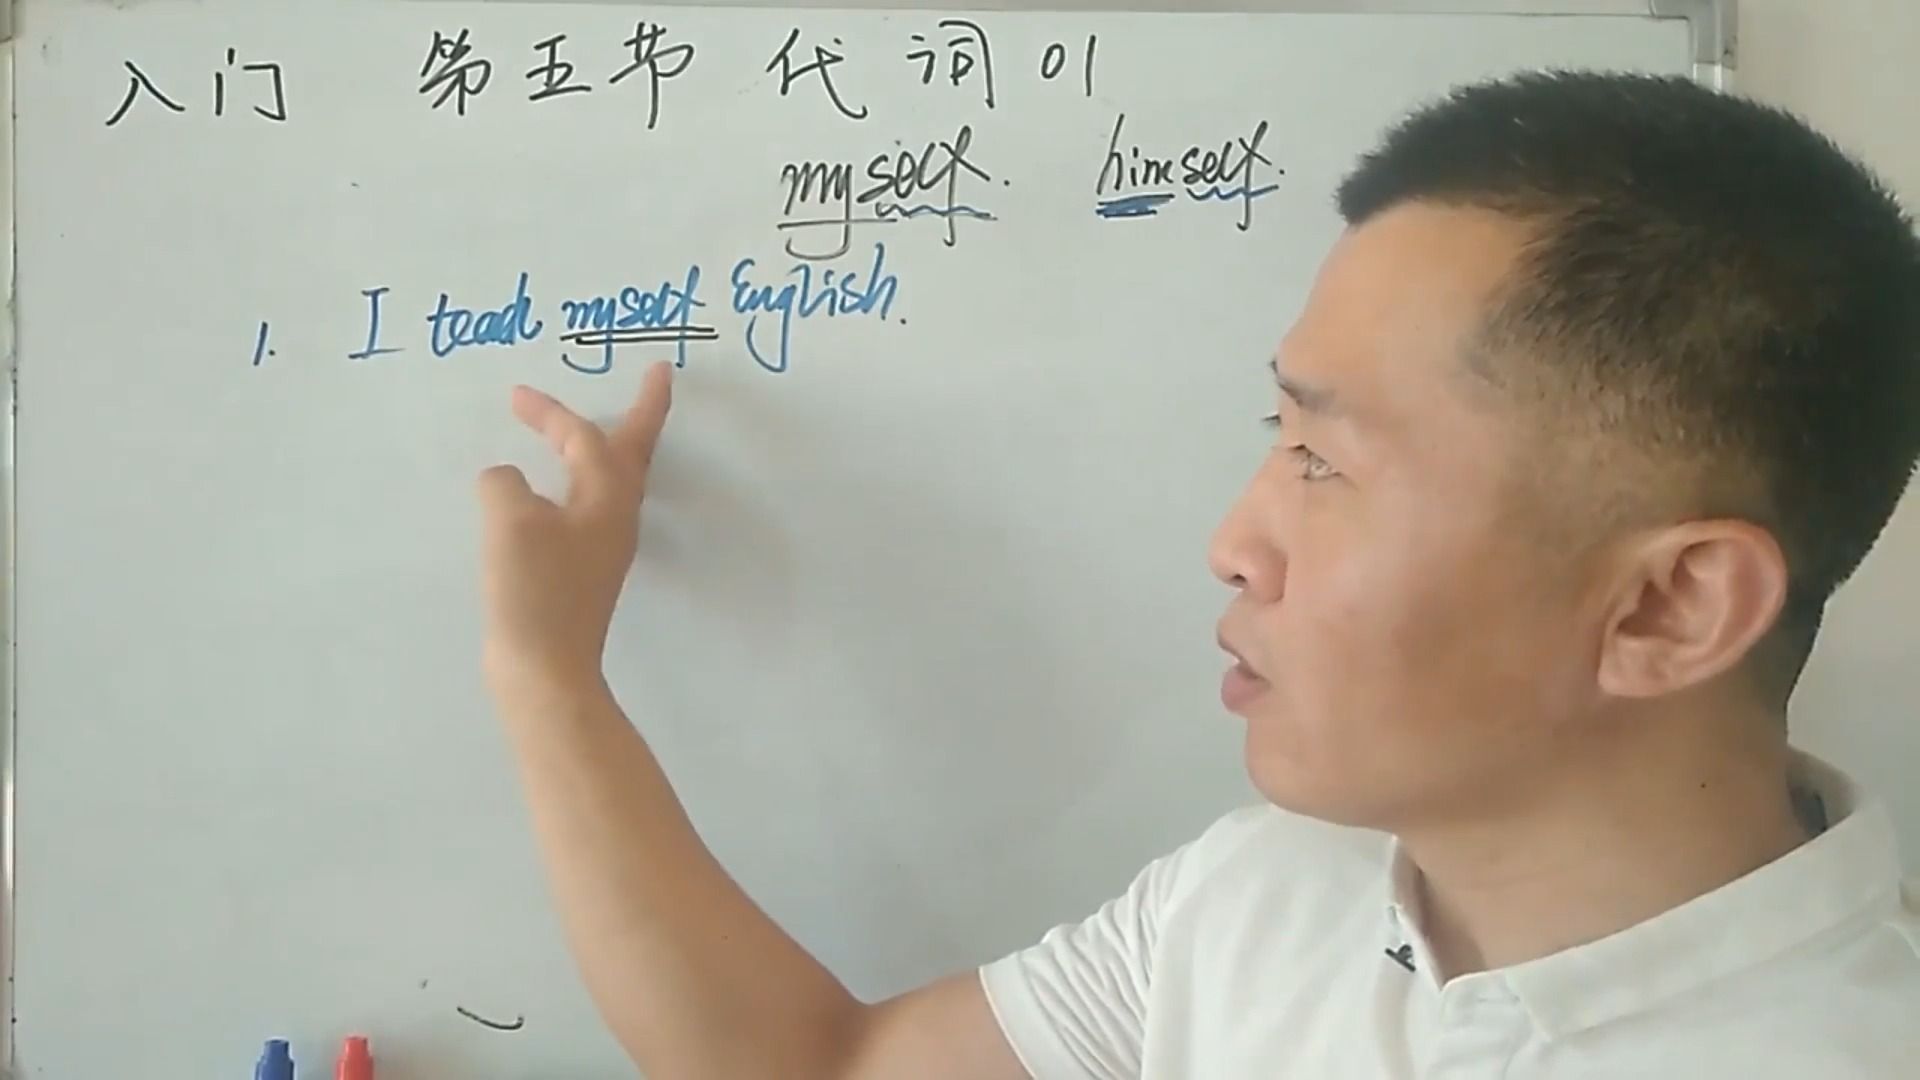 入门 第五节 代词 01
myself. himself.
1. I teach myself English.